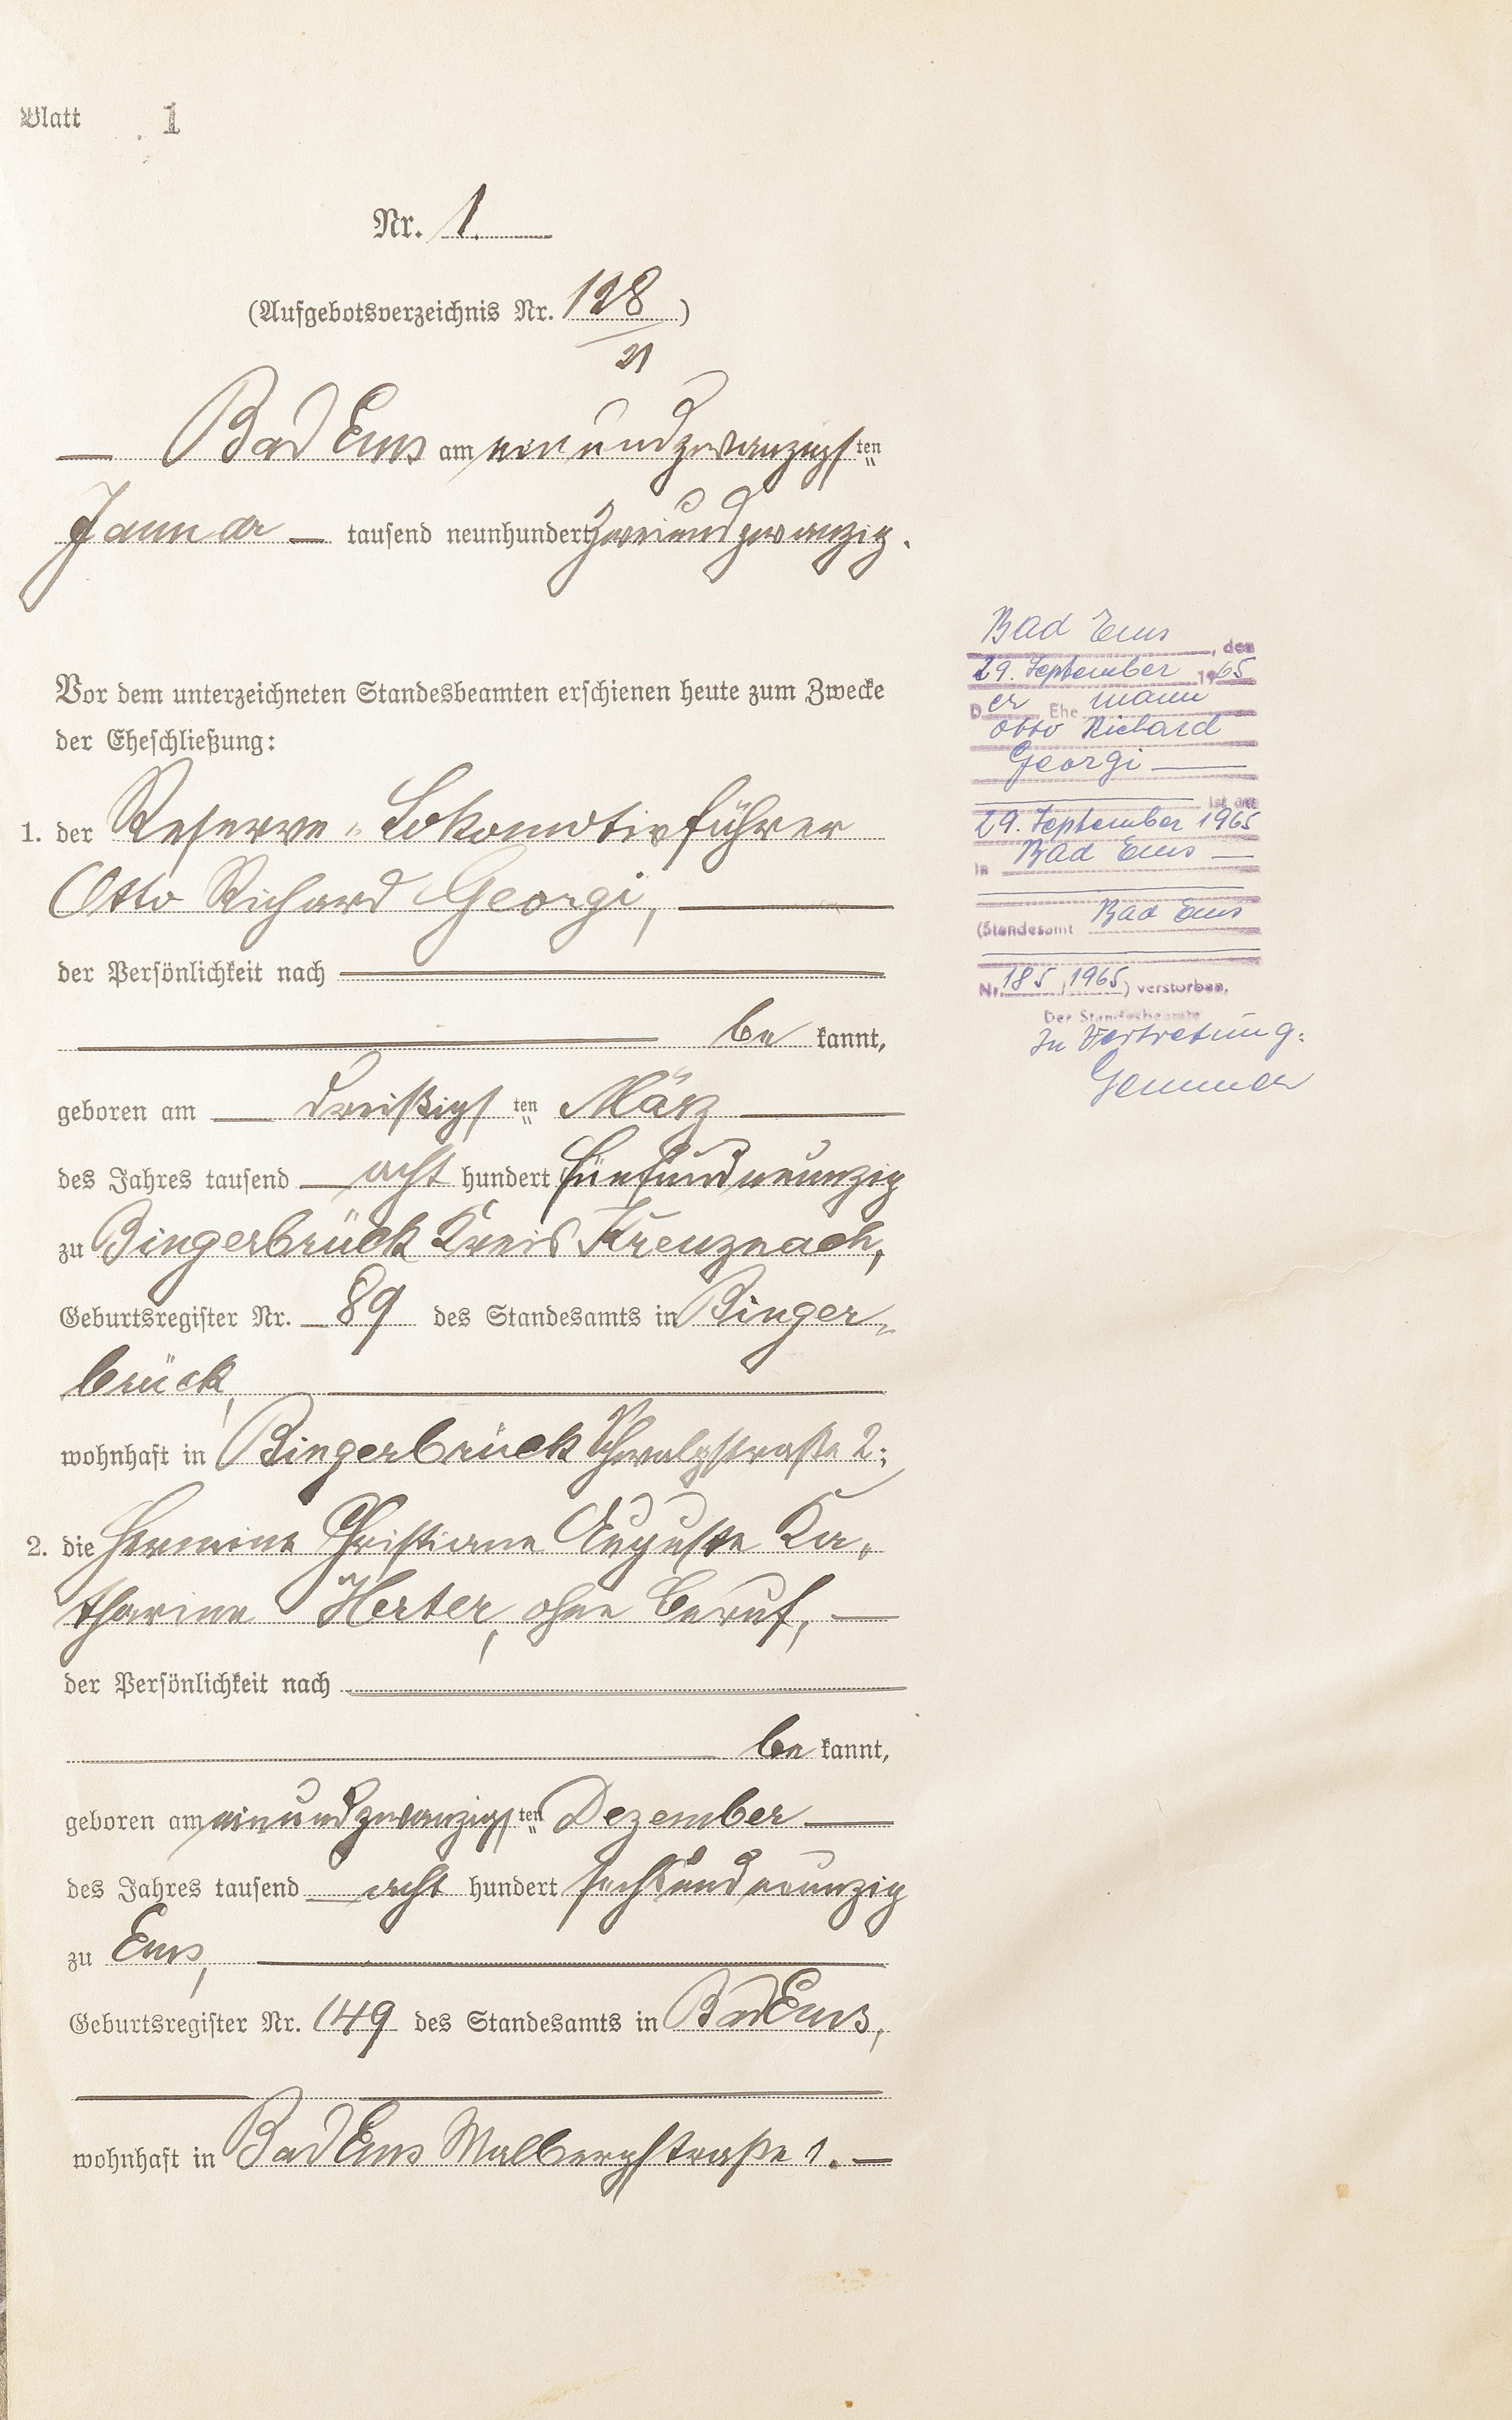 Blatt 1
Nr. 1.
(Aufgebotsverzeichnis Nr. 128)
21
Bad Ems am einundzwanzigsten
Januar tausend neunhundert zweiundzwanzig.
Vor dem unterzeichneten Standesbeamten erschienen heute zum Zwecke
der Eheschließung:
1. der Reserve-Lokomotivführer
Otto Richard Georgi,
der Persönlichkeit nach
bekannt,
geboren am dreißigsten März
des Jahres tausend acht hundert fünfundneunzig
zu Bingerbrück Kreis Kreuznach,
Geburtsregister Nr. 89 des Standesamts in Binger-
brück,
wohnhaft in Bingerbrück straße 2;
2. die Hermine Christiane Auguste Ka-
tharina Herter, ohne Beruf,
der Persönlichkeit nach
bekannt,
geboren am einundzwanzigsten Dezember
des Jahres tausend acht hundert sechsundneunzig
zu Ems,
Geburtsregister Nr. 149 des Standesamts in Bad Ems,
wohnhaft in Bad Ems Malbergstraße 1.
Bad Ems, den
29. September 1965
Der Ehemann
Otto Richard
Georgi
ist am
29. September 1965
in Bad Ems
(Standesamt Bad Ems
Nr. 185/1965) verstorben.
Der Standesbeamte
In Vertretung: